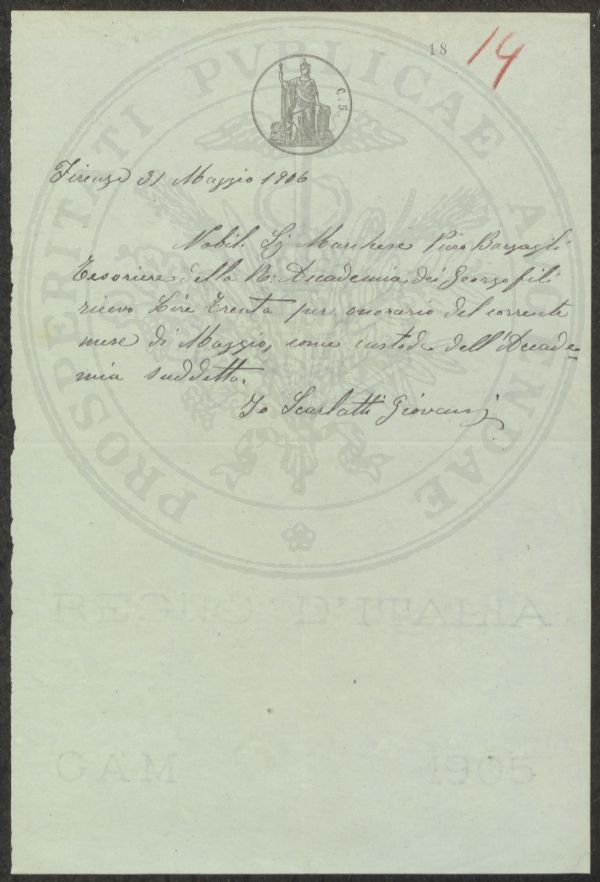 18 14
C. 5.
Firenze 31 Maggio 1906
Nobil. Sig Marchese Piero Bargagli
Tesoriere della R. Accademia dei Georgofili
ricevo Lire Trenta per onorario del corrente
mese di Maggio, come custode dell'Accade=
mia suddetta.
Io Scarlatti Giovanni
PROSPERITATI PVBLICAE AVGENDAE
REGNO D'ITALIA
GAM 1905